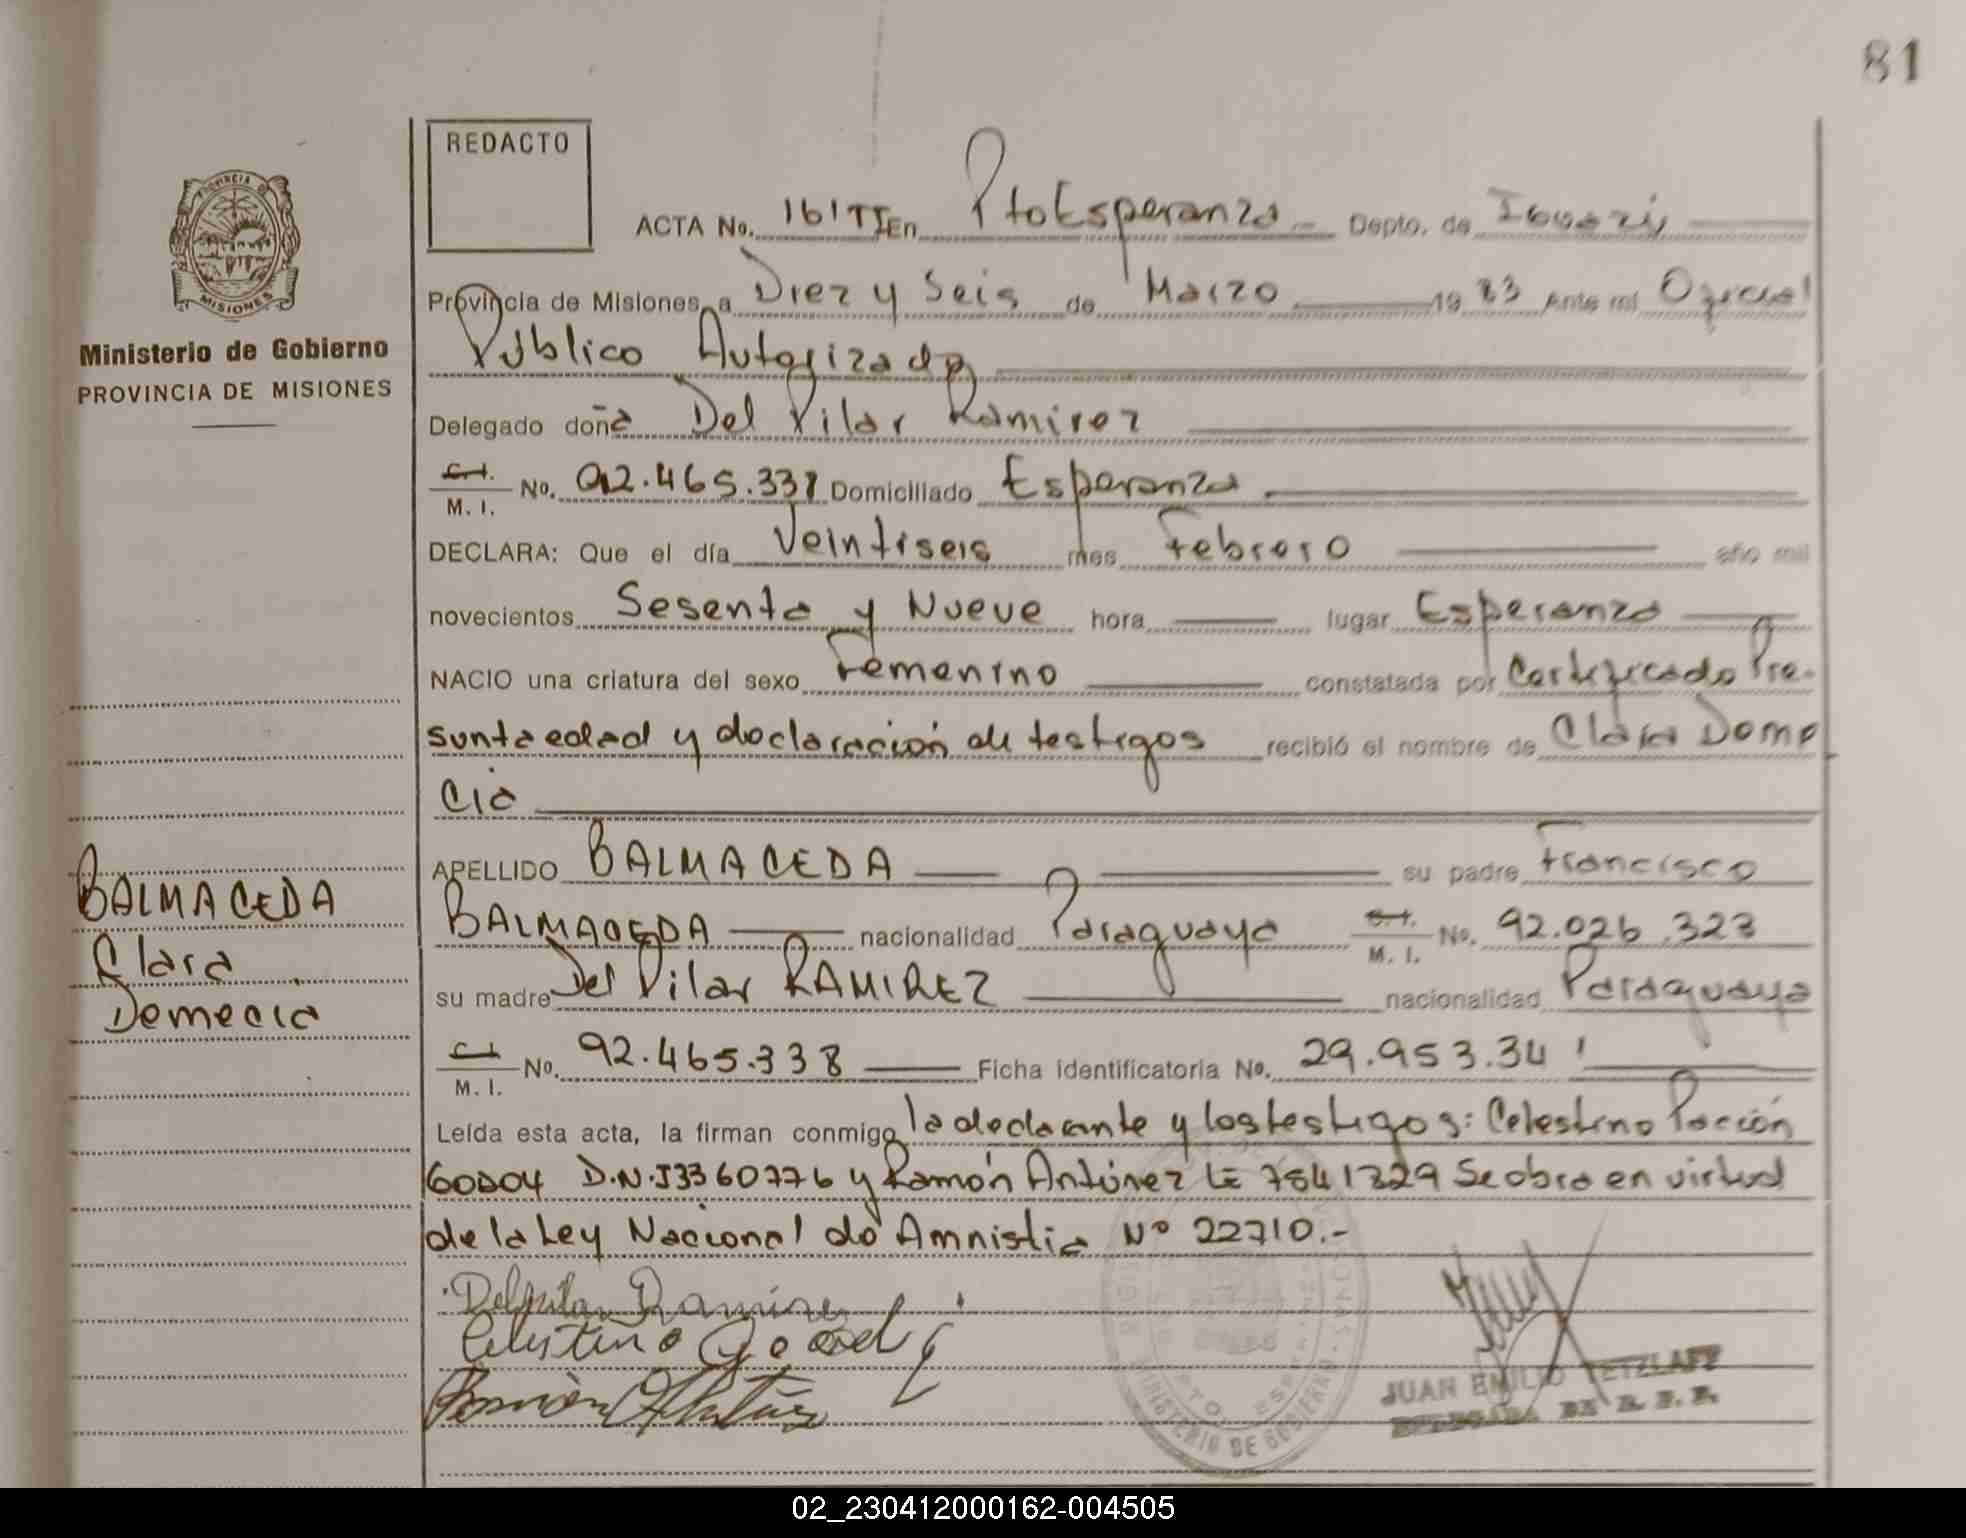 81
REDACTO
ACTA No. 161 TI En Pto Esperanza Depto. de Iguazú
PROVINCIA D MISIONES
Provincia de Misiones, a Diez y Seis de Marzo 1983 Ante mi Oficial
Ministerio de Gobierno
Público Autorizado
PROVINCIA DE MISIONES
Delegado doña Del Pilar Ramirez
C.I. M. I. No. 92.465.338 Domiciliado Esperanza
DECLARA: Que el día Veintiseis mes Febrero año mil
novecientos Sesenta y Nueve hora lugar Esperanza
NACIO una criatura del sexo Femenino constatada por Certificado Pre-
sunta edad y declaración de testigos recibió el nombre de Clara Deme
cia
APELLIDO BALMACEDA su padre Francisco
BALMACEDA nacionalidad Paraguaya C.I. M. I. No. 92.026.323
su madre Del Pilar RAMIREZ nacionalidad Paraguaya
C.I. M. I. No. 92.465.338 Ficha identificatoria No. 29.953.341
BALMACEDA
Clara
Demecia
Leída esta acta, la firman conmigo la declarante y los testigos: Celestino Porción
Godoy D.N.I 3360776 y Ramón Antúnez LE 7541329 Se obra en virtud
de la Ley Nacional de Amnistia Nº 22710.-
Delpilar Ramirez
Celestino Godoy
Ramón Antúnez
MINISTERIO DE GOBIERNO
JUAN EMILIO TETZLAFF
DELEGADA DE R. P. P.
02_230412000162-004505